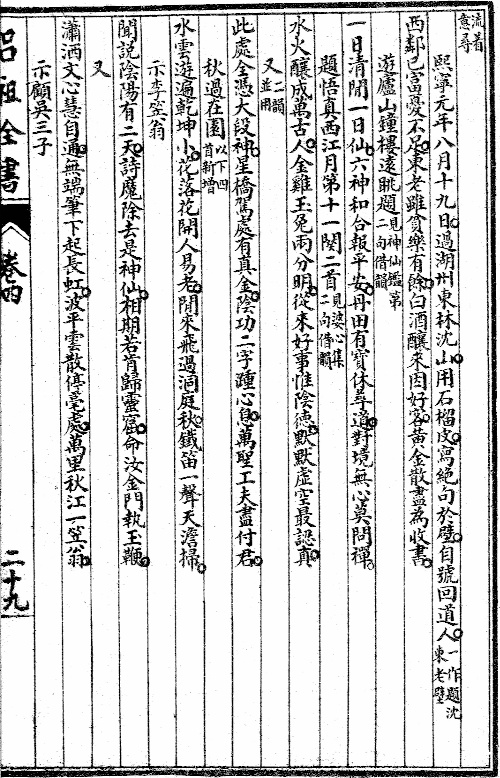 流着
意尋
熙寧元年八月十九日過湖州東林沈山用石榴皮寫絕句於壁自號回道人一作題沈東老壁
西鄰已富憂不足東老雖貧樂有餘白酒釀來因好客黃金散盡為收書
遊廬山鐘樓遠眺題見神仙鑑第二句借韻
一日清閒一日仙六神和合報平安丹田有寶休尋道對境無心莫問禪
題悟真西江月第十一闋二首見婆心集二句借韻
水火釀成萬古人金雞玉兔兩分明從來好事惟陰德默默虛空最認真
又二韻並用
此處全憑大段神星橋駕處有真金陰功二字踵心息萬聖工夫盡付君
秋過在園以下四首新增
水雲遊遍乾坤小花落花開人易老閒來飛過洞庭秋鐵笛一聲天澹掃
示李空翁
聞說陰陽有二天詩魔除去是神仙相期若肯歸靈窟命汝金門執玉鞭
又
瀟洒文心慧自通無端筆下起長虹波平雲散停毫處萬里秋江一笠翁
示顧吳三子
呂祖全書
卷四
二十九